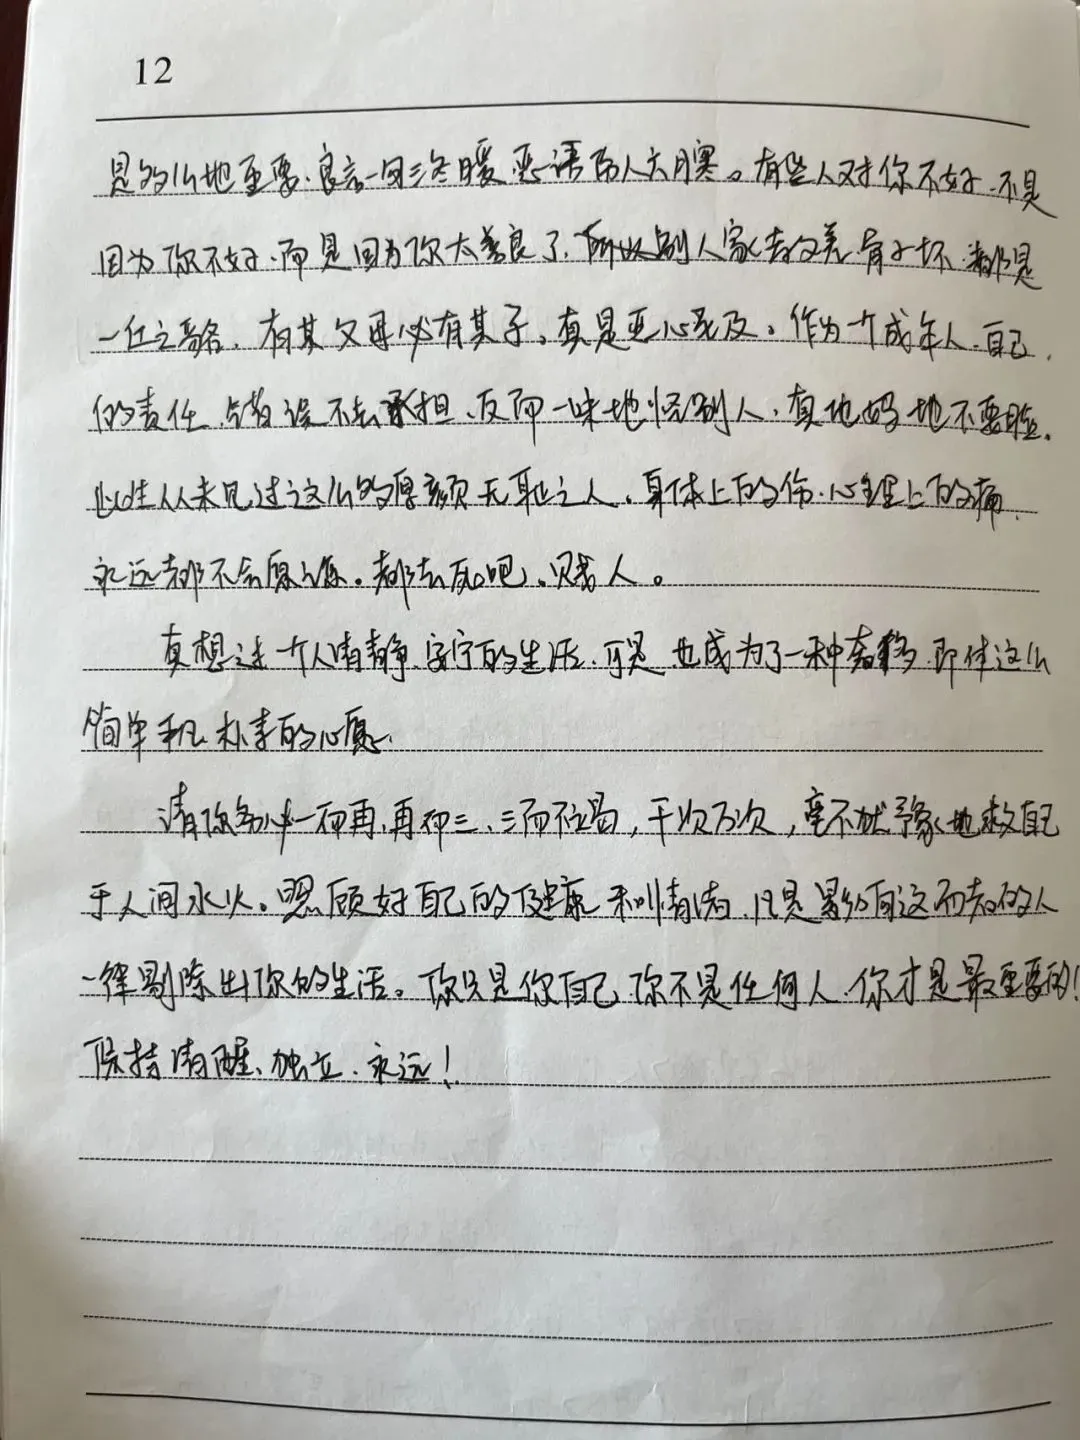 12
是多么地重要、良言一句三冬暖、恶语伤人六月寒。有些人对你不好、不是
因为你不好、而是因为你太善良了、所以别人家去父美、骨子坏、都是
一丘之貉、有其父母必有其子、真是恶心至及。作为一个成年人、自己
的责任、错误不去承担、反而一味地怪别人、真他妈地不要脸。
此生从未见过这么的厚颜无耻之人、身体上的伤、心理上的痛、
永远都不会原谅。都去死吧、贱人。
真想过一个人清静、安宁的生活、可是也成为了一种奢侈、即使这么
简单和朴素的心愿、
请你务必一而再、再而三、三而不竭，千次万次，毫不犹豫地救自己
于人间水火。照顾好自己的健康和情绪、凡是影响这两者的人
一律剔除出你的生活。你只是你自己、你不是任何人、你才是最重要的！
保持清醒、独立、永远！